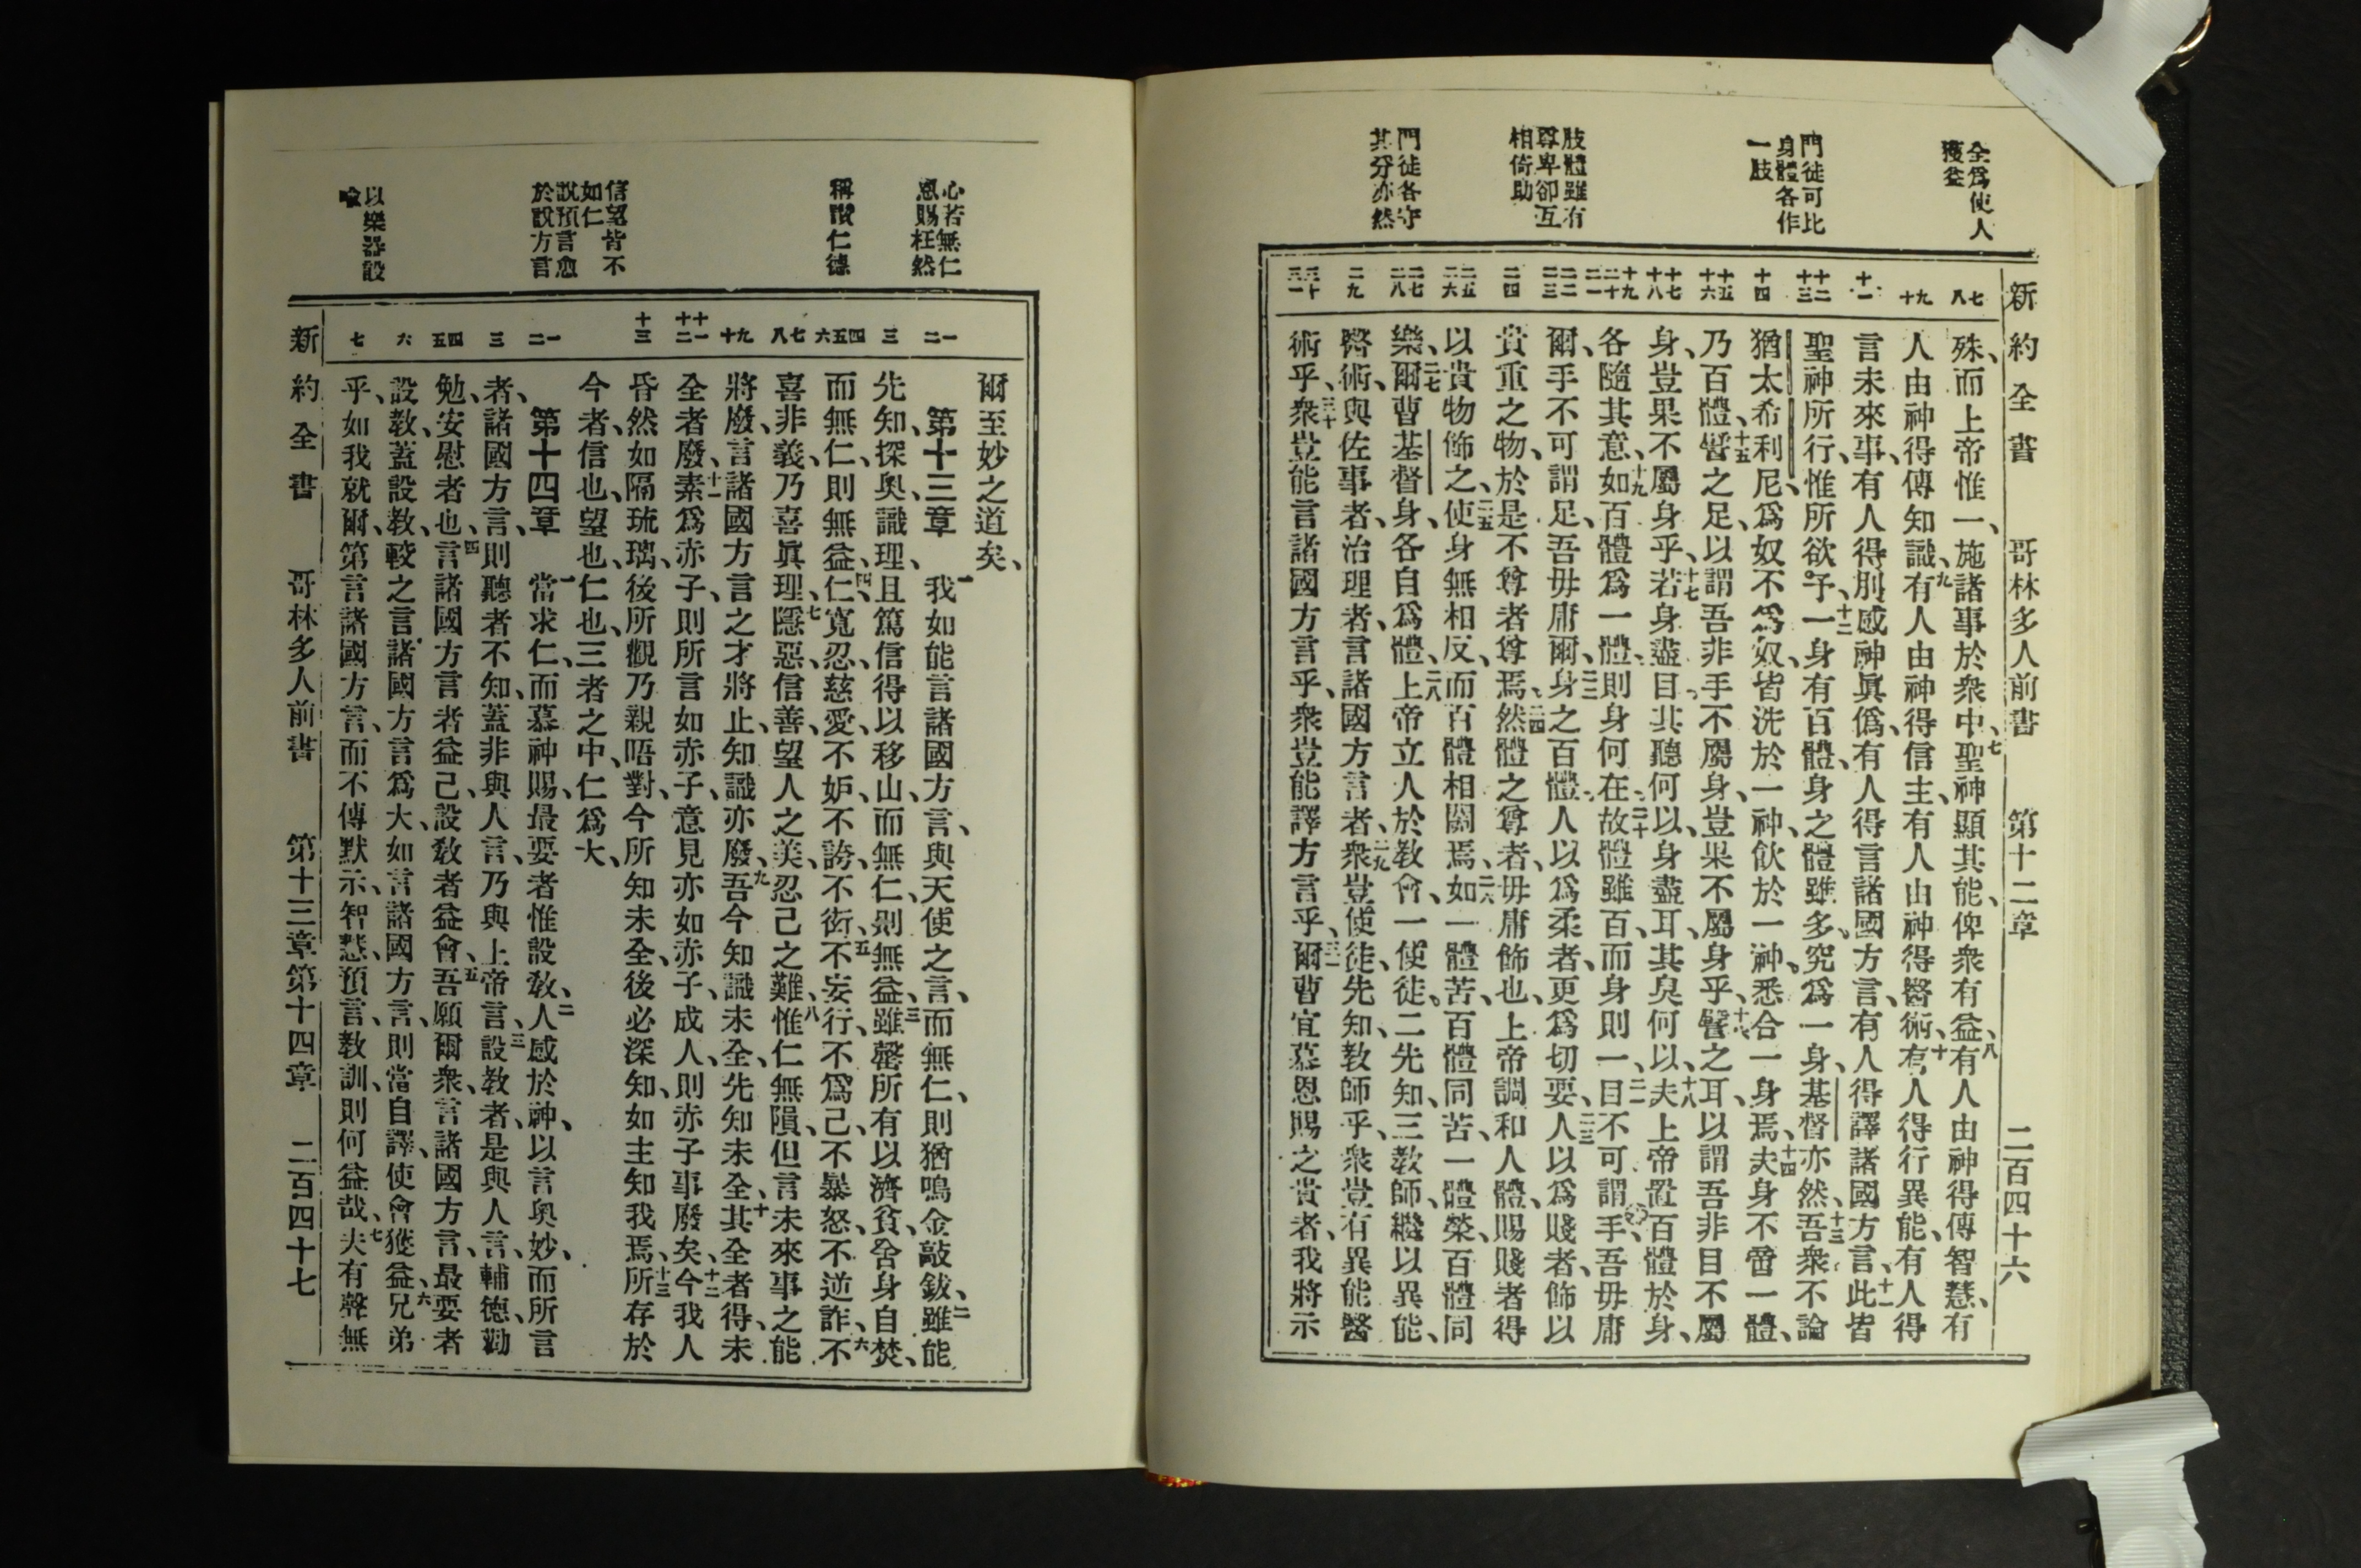 全爲使人
獲益
門徒可比
身體各作
一肢
肢體雖有
尊卑卻互
相倚助
門徒各守
其分亦然
新約全書 哥林多人前書 第十二章 二百四十六
七八
九十
十一
十二十三
十四
十五十六
十七十八
十九二十二一
二二二三
二四
二五二六
二七二八
二九
三十三一
殊、而上帝惟一、施諸事於衆中、七聖神顯其能、俾衆有益、八有人由神得傳智慧、有
人由神得傳知識、九有人由神得信主、有人由神得醫術、十有人得行異能、有人得
言未來事、有人得別感神眞僞、有人得言諸國方言、有人得譯諸國方言、十一此皆
聖神所行、惟所欲予、十二一身有百體、身之體雖多、究爲一身、基督亦然、十三吾衆不論
猶太希利尼、爲奴不爲奴、皆洗於一神、飲於一神、悉合一身焉、十四夫身不啻一體、
乃百體、十五譬之足、以謂吾非手不屬身、豈果不屬身乎、十六譬之耳、以謂吾非目不屬
身、豈果不屬身乎、十七若身盡目、其聽何以、身盡耳、其臭何以、十八夫上帝置百體於身、
各隨其意、十九如百體爲一體、則身何在、二十故體雖百、而身則一、二一目不可謂手、吾毋庸
爾、手不可謂足、吾毋庸爾、二二身之百體、人以爲柔者、更爲切要、二三人以爲賤者、飾以
貴重之物、於是不尊者尊焉、二四然體之尊者、毋庸飾也、上帝調和人體、賜賤者得
以貴物飾之、二五使身無相反、而百體相關焉、二六如一體苦、百體同苦、一體榮、百體同
樂、二七爾曹基督身、各自爲體、二八上帝立人於教會、一使徒、二先知、三教師、繼以異能、
醫術、與佐事者、治理者、言諸國方言者、二九衆豈使徒、先知、教師乎、衆豈有異能醫
術乎、三十衆豈能言諸國方言乎、衆豈能譯方言乎、三一爾曹宜慕恩賜之貴者、我將示
心若無仁
恩賜枉然
稱讚仁德
信望皆不
如仁
說預言愈
於說方言
以樂器設
喩
一二
三
四五六
七八
九十
十一十二
十三
一二
三
四五
六
七
爾至妙之道矣、
第十三章 一我如能言諸國方言、與天使之言、而無仁、則猶鳴金敲鈸、二雖能
先知、探奧、識理、且篤信得以移山、而無仁、則無益、三雖罄所有以濟貧、舍身自焚、
而無仁、則無益、四仁、寬忍、慈愛、不妒、不誇、不衒、五不妄行、不爲己、不暴怒、不逆詐、六不
喜非義、乃喜眞理、七隱惡、信善、望人之美、忍己之難、八惟仁無隕、但言未來事之能
將廢、言諸國方言之才將止、知識亦廢、九吾今知識未全、先知未全、十其全者得、未
全者廢、十一素爲赤子、則所言如赤子、意見亦如赤子、成人、則赤子事廢矣、十二今我人
昏然如隔琉璃、後所觀乃親晤對、今所知未全、後必深知、如主知我焉、十三所存於
今者、信也、望也、仁也、三者之中、仁爲大、
第十四章 一當求仁、而慕神賜、最要者惟設敎、二人感於神、以言奧妙、而所言
者、諸國方言、則聽者不知、蓋非與人言、乃與上帝言、三設教者、是與人言、輔德、勸
勉、安慰者也、四言諸國方言者益己、設敎者益會、五吾願爾衆、言諸國方言、最要者
設教、蓋設教、較之言諸國方言爲大、如言諸國方言、則當自譯、使會獲益、六兄弟
乎、如我就爾、第言諸國方言、而不傳默示、智慧、預言、教訓、則何益哉、七夫有聲無
新約全書 哥林多人前書 第十三章第十四章 二百四十七